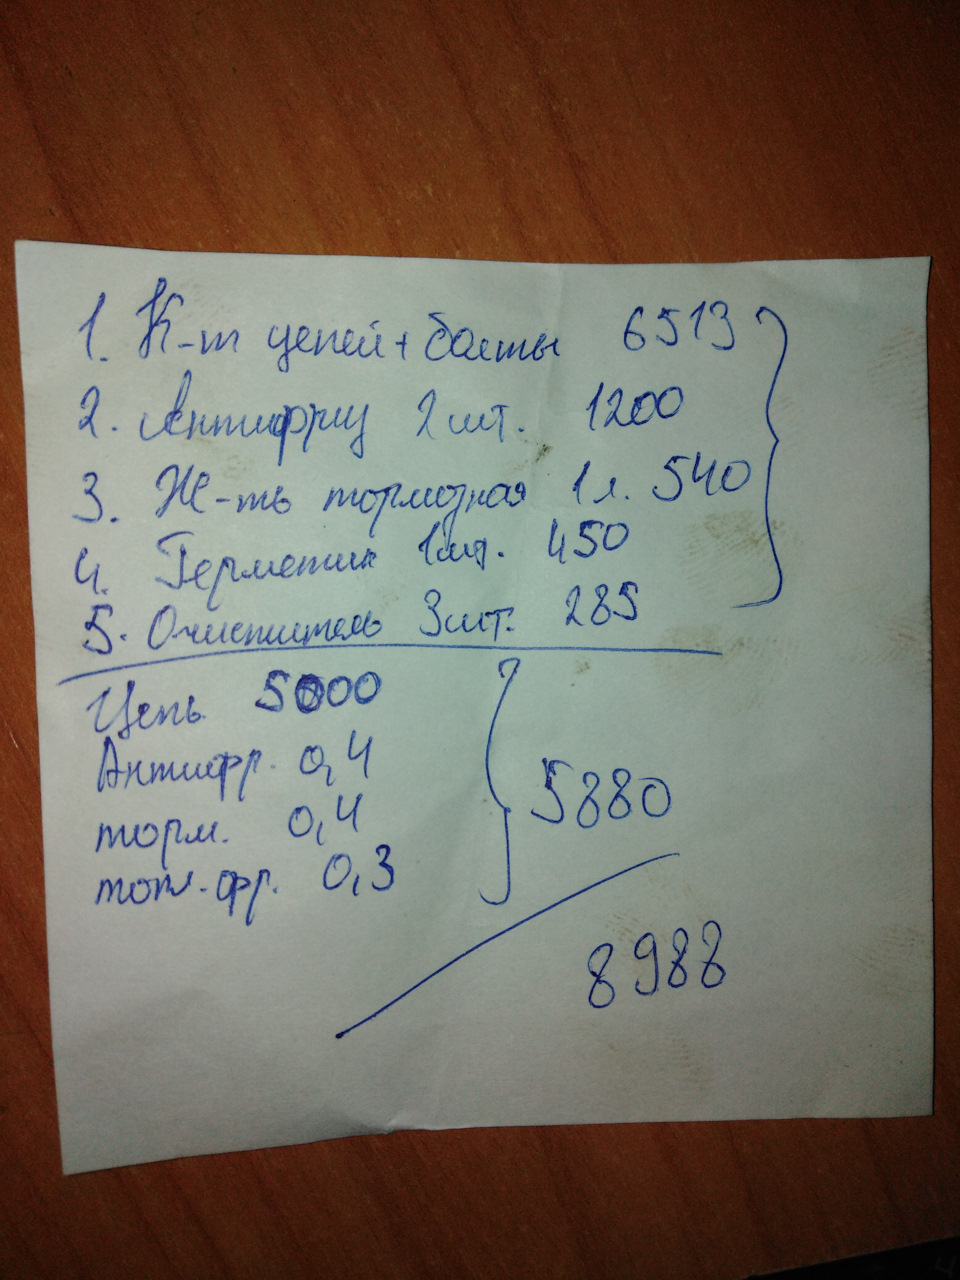 1. К-т цепей + болты 6513
2. Антифриз 2 шт. 1200
3. Ж-ть тормозная 1 л. 540
4. Герметик 1 шт. 450
5. Очиститель 3 шт. 285
Цепь 5000
Антифр. 0,4
торм. 0,4
топл. фр. 0,3
5880
8988